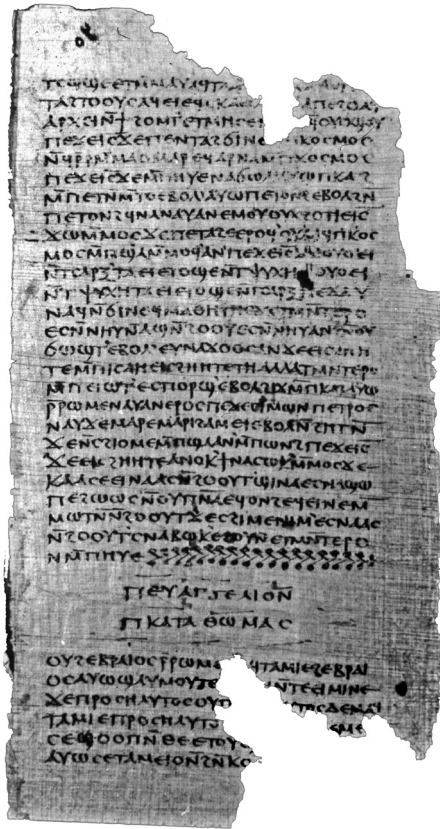 ⲧⲥⲱϣⲉⲉⲧⲙ̄ⲙⲁⲩⲁϥⲧⲁ
ⲧⲁϩⲧⲟⲟⲩⲥⲁϥⲉⲓⲉϥⲥⲕⲁ ⲁⲡⲉϩⲟⲁϥ
ⲁⲣⲭⲉⲓⲛ̄ϯϩⲟⲙⲧⲉⲧⲙⲏⲥⲉ ϥⲟⲩⲟϣⲟⲩ
ⲡⲉϫⲉⲓ̄ⲥ̄ϫⲉⲡⲉⲛⲧⲁϩϭⲓⲛⲉ ⲡⲕⲟⲥⲙⲟⲥ
ⲛϥ̄ⲣ̄ⲣⲙ̄ⲙⲁⲟⲙⲁⲣⲉϥⲁⲣⲛⲁⲙ̄ⲡⲕⲟⲥⲙⲟⲥ
ⲡⲉϫⲉⲓ̄ⲥ̄ϫⲉⲙ̄ⲡⲏⲩⲉⲛⲁϭⲱⲗⲁⲩⲱⲡⲕⲁϩ
ⲙ̄ⲡⲉⲧⲛ̄ⲙ̄ⲧⲟⲉⲃⲟⲗⲁⲩⲱⲡⲉⲧⲟⲛϩⲉⲃⲟⲗϩⲛ̄
ⲡⲉⲧⲟⲛϩϥⲛⲁⲛⲁⲩⲁⲛⲉⲙⲟⲩⲟⲩⲭϩⲟⲧⲉⲉⲓ̄ⲥ̄
ϫⲱⲙ̄ⲙⲟⲥϫⲉⲡⲉⲧⲁϩⲉⲉⲣⲟϥⲟⲩⲁⲁϥⲡⲕⲟⲥ
ⲙⲟⲥⲙ̄ⲡϣⲁⲙ̄ⲙⲟϥⲁⲛⲡⲉϫⲉⲓ̄ⲥ̄ϫⲉⲟⲩⲟⲉⲓ
ⲛ̄ⲧⲥⲁⲣⲝⲧⲁⲉⲓⲉⲧⲟϣⲉⲛ̄ⲧⲯⲩⲭⲏⲟⲩⲟⲉⲓ
ⲛ̄ⲧⲯⲩⲭⲏⲧⲁⲉⲓⲉⲧⲟϣⲉⲛ̄ⲧⲥⲁⲣⲝⲡⲉϫⲁⲩ
ⲛⲁϥⲛ̄ϭⲓⲛⲉϥⲙⲁⲑⲏⲧⲏⲥϫⲉⲧⲙⲛ̄ⲧⲉⲣⲟ
ⲉⲥⲛ̄ⲛⲏⲩⲛ̄ⲁϣⲛ̄ϩⲟⲟⲩⲉⲥⲛ̄ⲛⲏⲩⲁⲛϩⲛ̄ⲟⲩ
ϭⲱϣⲧⲉⲃⲟⲗⲉⲩⲛⲁϫⲟⲟⲥⲁⲛϫⲉⲉⲓⲥϩⲏⲏ
ⲧⲉⲙ̄ⲡⲓⲥⲁⲏⲉⲓⲥϩⲏⲏⲧⲉⲧⲏⲁⲗⲗⲁⲧⲙⲛ̄ⲧⲉⲣⲟ
ⲙ̄ⲡⲉⲓⲱⲧⲉⲥⲡⲟⲣϣⲉⲃⲟⲗϩⲓϫⲙ̄ⲡⲕⲁϩⲁⲩⲱ
ⲣ̄ⲣⲱⲙⲉⲛⲁⲩⲁⲛⲉⲣⲟⲥⲡⲉϫⲉⲥⲓⲙⲱⲛⲡⲉⲧⲣⲟⲥ
ⲛⲁⲩϫⲉⲙⲁⲣⲉⲙⲁⲣⲓϩⲁⲙⲉⲓⲉⲃⲟⲗⲛ̄ϩⲏⲧⲛ̄
ϫⲉⲛ̄ⲥϩⲓⲟⲙⲉⲙ̄ⲡϣⲁⲁⲛⲙ̄ⲡⲱⲛϩⲡⲉϫⲉⲓ̄ⲥ̄
ϫⲉⲉⲓⲥϩⲏⲏⲧⲉⲁⲛⲟⲕϯⲛⲁⲥⲱⲕⲙ̄ⲙⲟⲥϫⲉ
ⲕⲁⲁⲥⲉⲉⲓⲛⲁⲁⲥⲛ̄ϩⲟⲟⲩⲧϣⲓⲛⲁⲉⲥⲛⲁϣⲱ
ⲡⲉϩⲱⲱⲥⲛ̄ⲟⲩⲡⲛ̄ⲁ̄ⲉϥⲟⲛϩⲉϥⲉⲓⲛⲉⲙ̄
ⲙⲱⲧⲛ̄ⲛ̄ϩⲟⲟⲩⲧϫⲉⲥϩⲓⲙⲉⲛⲓⲙⲉⲥⲛⲁⲁⲥ
ⲛ̄ϩⲟⲟⲩⲧⲥⲛⲁⲃⲱⲕⲉϩⲟⲩⲛⲉⲧⲙⲛ̄ⲧⲉⲣⲟ
ⲛⲙ̄ⲡⲏⲩⲉ
ⲡⲉⲩⲁⲅⲅⲉⲗⲓⲟⲛ
ⲡⲕⲁⲧⲁⲑⲱⲙⲁⲥ
ⲟⲩϩⲉⲃⲣⲁⲓⲟⲥⲣ̄ⲣⲱⲙ ϥⲧⲁⲙⲓⲉϩⲉⲃⲣⲁⲓ
ⲟⲥⲁⲩⲱϣⲁⲩⲙⲟⲩⲧⲉ ⲛ̄ⲧⲉⲉⲓⲙⲓⲛⲉ
ϫⲉⲡⲣⲟⲥⲏⲗⲩⲧⲟⲥⲟⲩⲡ ⲧⲟⲥⲇⲉⲙⲁϥ
ⲧⲁⲙⲓⲉⲡⲣⲟⲥⲏⲗⲩⲧⲟ ⲉⲙⲉ
ⲥⲉϣⲟⲟⲡⲛ̄ⲑⲉⲉⲧⲟⲩϣ
ⲁⲩⲱⲥⲉⲧⲁⲙⲉⲓⲟⲛ̄ϩⲛ̄ⲕⲟ